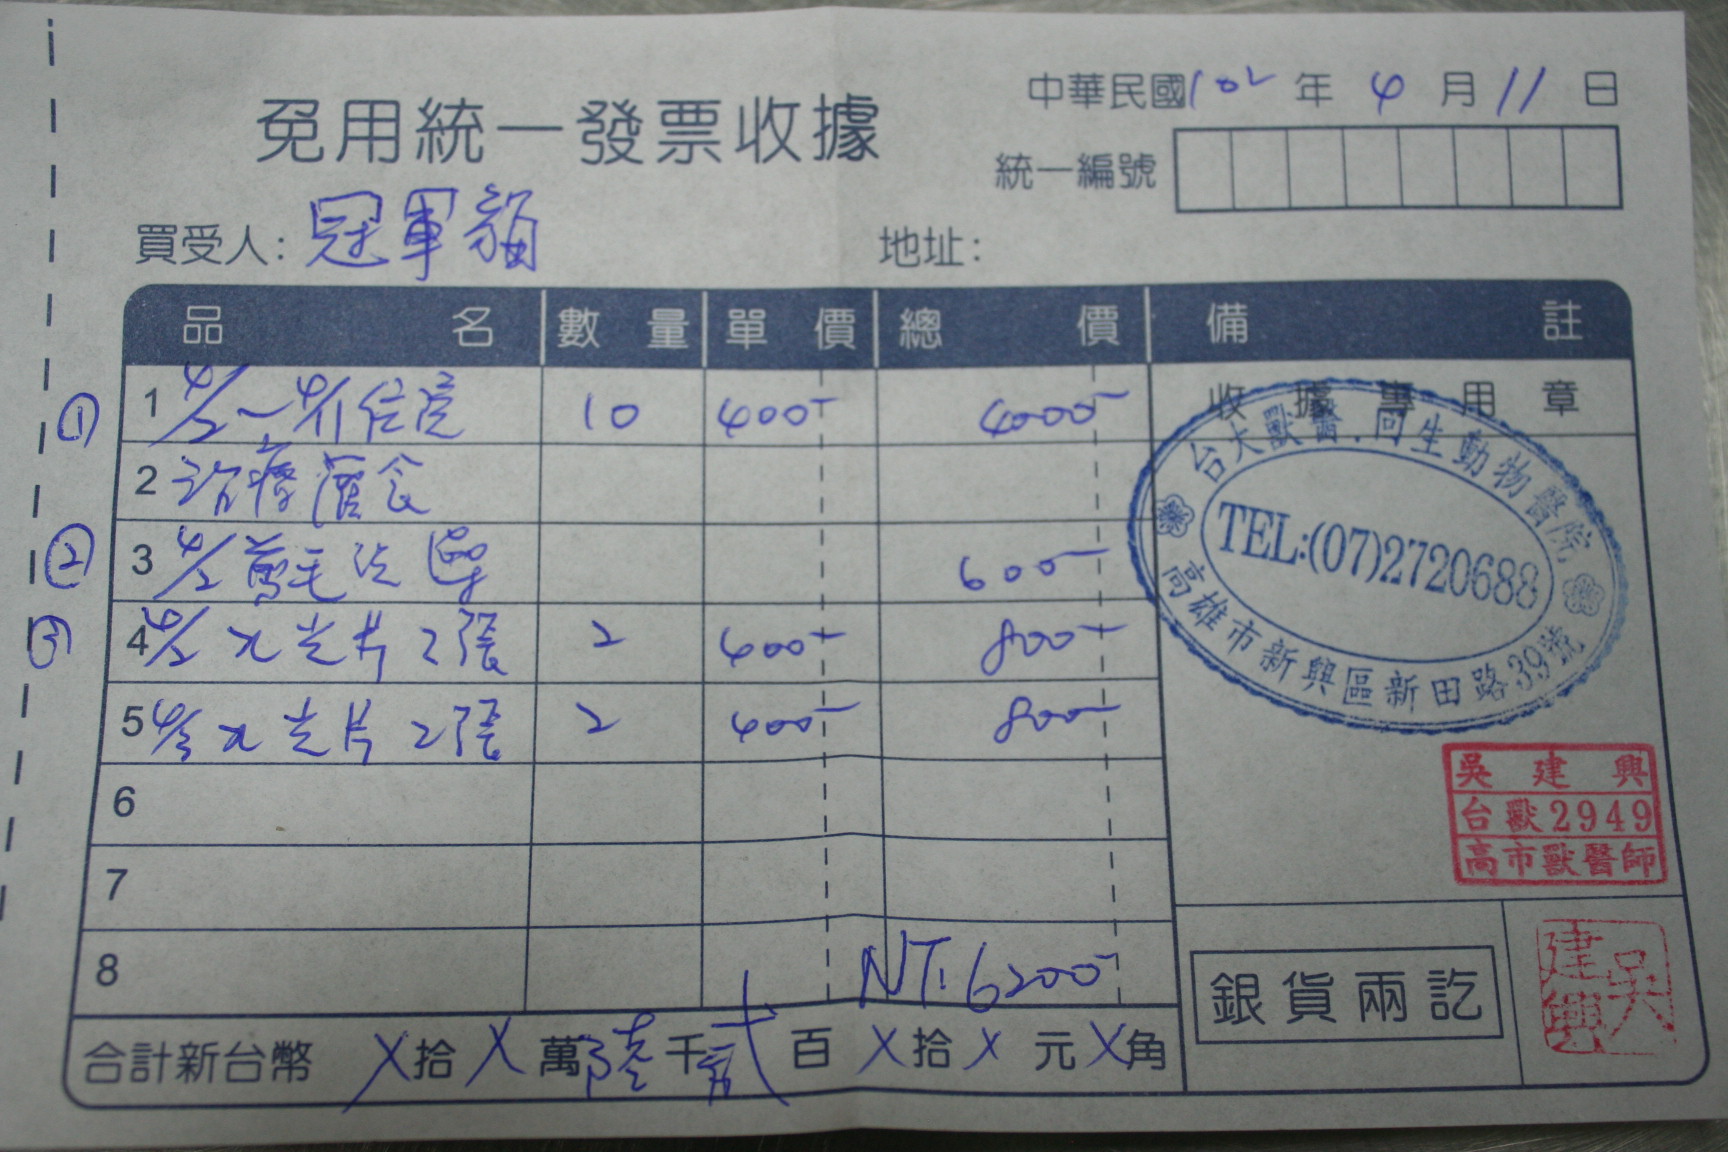 免用統一發票收據
中華民國102年4月11日
統一編號
買受人：冠軍貓
地址：
品名 數量 單價 總價 備註
① 1 4/2~4/11住院 10 400- 4000-
收據專用章
2 治療灌食
② 3 4/2剪毛洗澡 600-
③ 4 4/2 X光片2張 2 400- 800-
5 4/3 X光片2張 2 400- 800-
6
7
8 NT.6200-
合計新台幣X拾X萬陸千貳百X拾X元X角
台大獸醫.同生動物醫院
TEL:(07)2720688
高雄市新興區新田路39號
吳建興
台獸2949
高市獸醫師
銀貨兩訖
吳建興